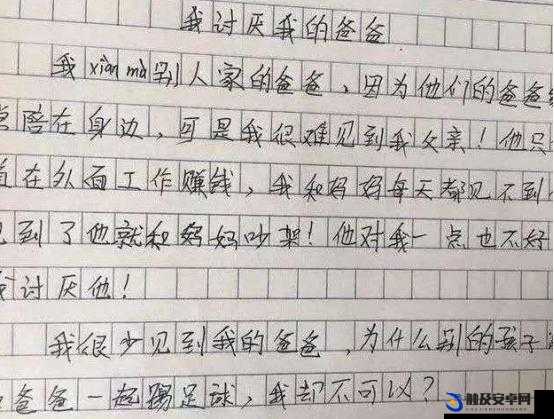 我讨厌我的爸爸
我xiàn mù别人家的爸爸，因为他们的爸爸
陪在身边，可是我很难见到我父亲！他只
在外面工作赚钱，我和妈妈每天都见不到
到了他就和妈妈吵架！他对我一点也不好
讨厌他！
我很少见到我的爸爸，为什么别的孩子
爸爸一起踢足球，我却不可以？
触及安卓网